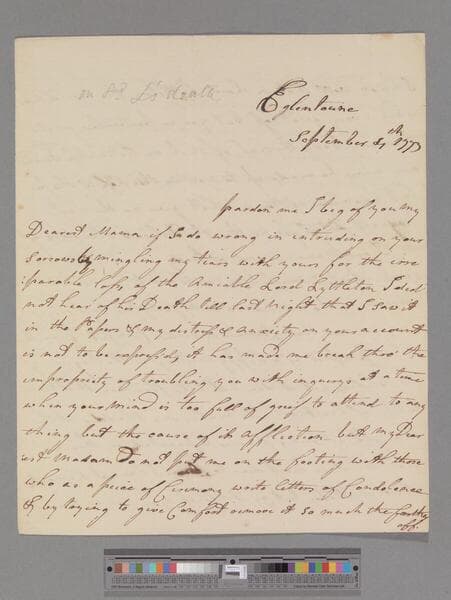 on Ld L's death
Eglintoune
September 4th 177
pardon me I beg of you my
Dearest Mama if I do wrong in intruding on your
sorrows by mingling my tears with yours for the irre
parable loss of the Amiable Lord Lyttleton I did
not hear of his Death till last night that I saw it
in the Papers & my distress & Anxiety on your account
is not to be expressed, it has made me break thro' the
impropriety of troubling you with inquerys at a time
when your Mind is too full of greif to attend to any
thing but the cause of its Affliction but my Dear
est Madam do not put me on the footing with those
who as a peice of Ceremony write letters of Condolence
& by trying to give Comfort remove it so much the farther
off.